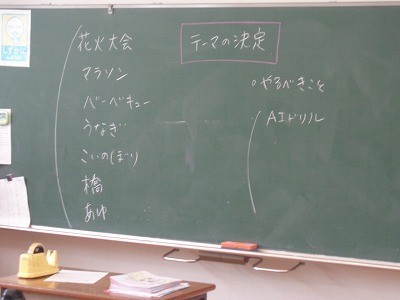 テーマの決定
花火大会
マラソン
バーベキュー
うなぎ
こいのぼり
橋
あゆ
◦やるべきこと
AIドリル